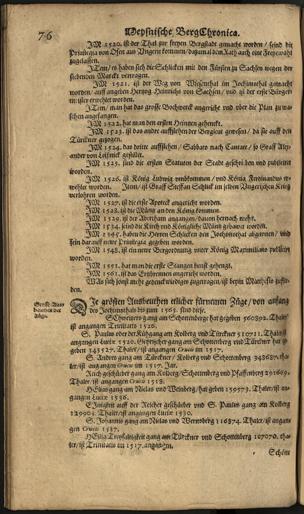 76 Meyßnische BergChronica.
IM 1520. ist der Thal zur freyen Bergstadt gemacht worden / seind die
Privilegia von Ofen aus Ungern kommen / darzu dem Rath auch eine Freyenwahl
zugelassen.
ITem / es haben sich die Schlicken mit den Fürsten zu Sachsen wegen der
siebenden Marckt vertragen.
IM 1521. ist der Weg von Wiesenthal im Jochimsthal gemacht
worden / auff angeben Hertzog Heinrichs von Sachsen / und ist der erste Bürger-
meister erwehlet worden.
ITem / man hat das große Pochwerck angericht und über die Plan zu wa-
schen angefangen.
IM 1522. hat man den ersten Heinten gehenckt.
IM 1523. ist das ander auffstehen der Bergleut gewesen / da sie auff den
Türckner gezogen.
IM 1524. das dritte auffstehen / Sabbato nach Cantate / so Graff Alex-
ander von Leißnick gestillet.
IM 1525. sind die ersten Statuten der Stadt gescheben und publiciret
worden.
IM 1526. ist König Ludwig umbkommen / und König Ferdinandus er-
wehlet worden. Item / ist Graff Steffan Schlick im selben Ungerischen Krieg
verlohren worden.
IM 1527. ist die erste Apoteck angericht worden.
IM 1528. ist die Müntz an den König kommen.
IM 1529. ist der Abrathum angangen / davon hernach mehr.
IM 1534. seind die Kirch und Königliche Müntz gebawt worden.
IM 1545. haben die Herren Schlicken den Jochimsthal abgetreten / und
sein darauff newe Privilegia gegeben worden.
IM 1548. ist ein newe Bergordnung unter König Maximiliano publicirt
worden.
IM 1551. hat man die erste Stangen kunst gehengt.
IM 1561. ist das Erbbereiten angericht worden.
Was sich sonst mehr gedenckwirdiges zugetragen / ist beym Matthesio zufin-
den.
DIe grösten Außbeuthen etlicher fürnemen Züge / von anfang
des Jochimsthals biß zum 1565. sind diese.
Schweitzers gang am Schottenberge hat gegeben 560392. Thaler /
ist angangen Trinitatis 1526.
S. Paulus oder der Kühgang am Kolberg und Türckner 510721. Thaler / ist
angangen Luciæ 1520. gang am Schottenberg und Türckner hat ge-
geben 143527. Thaler / ist angangen Crucis 1517.
S. Andres gang am Türckner / Kolberg und Schottenberg 342687. tha-
ler / ist angangen im 1517. Jar.
Reich geschieber gang am Kolberg / Schottenberg und Pfaffenberg 291669.
Thaler / ist angangen Crucis 1518.
HElias gang am Niclas und Weinberg / hat geben 159973. Thaler / ist an-
gangen Luciæ 1536.
EInigkeit auff der Reicher geschieber und S. Paulus gang am Kolberg
129903. Thaler / ist angangen Luciæ 1530.
S. Johannis gang am Niclas und Wernsberg 116374. Thaler / ist angan-
gen Crucis 1537.
HEilig Dreyfaltigkeit gang am Türckner und Schottenberg 107070. tha-
ler / ist Trinitatis im 1517. angangen.
Schön